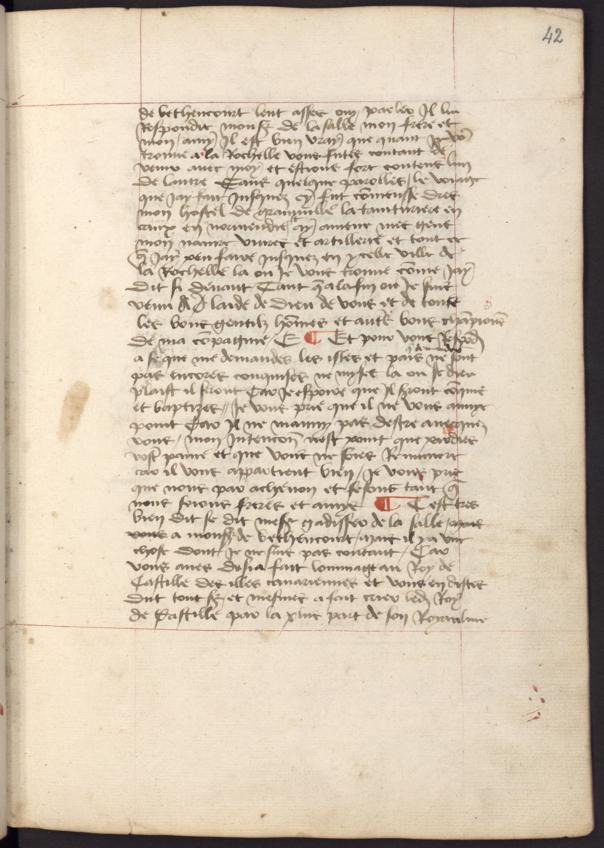 42
de bethencourt leut assez ouy parler Il luy
Respondit monsr de la salle mon frere et
mon amy Il est bien vray que quant Je vous
trouue a la Rochelle vous futes contant de
venir auec moy et estions fort contens lun
de lautre Sans quelque parolles le voiage
que Jay fait Jusques cy fut commensse des
mon hostel de grainuille la tainturiere en
caux en normendie Jay amene mes gens
mon nauire viures et artillerie et tout ce
q Jay peu faire Jusques en ycelle ville de
la Rochelle la ou Je vous trouue comme Jay
dit si deuant Tant q a la fin ou Je suis
venu a laide de dieu de vous et de tous
les bons gentilz hommes et autrs bons champions
de ma compagnie Et pour vous Respondre
a se que me demandes les isles et pais ne sont
pas encores conquises ne mises la ou se dieu
plaist il seront Car Je espoire que Il seront conquis
et baptizes Je vous prie que il ne vous annuye
point Car Il ne mannuy pas destre auecques
vous mon intencon nest point que perdies
vost paine et que vous ne soies Remunere
car il vous appartient bien Je vous prie
que nous par acheuon et fesons tant q
nous soions freres et amys Cest tres
bien dit se dit messe gadiffer de la salle
a monsr de bethencourt mais il y a vne
chose dont Je ne suis pas contant Car
vous aues desia fait lommage au Roy de
Castille des illes canariennes et vous en distes
du tout sr et mesmes a fait crier ledt Roy
de Castille par la plus part de son Royaulme